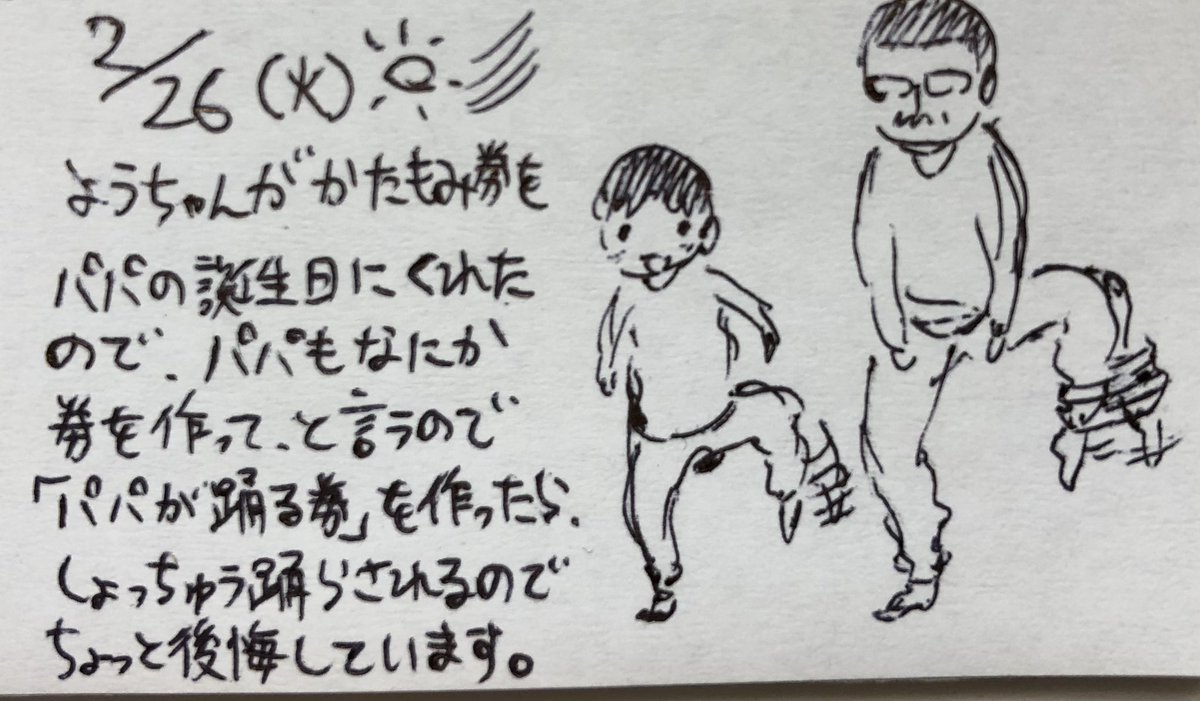 2/26(火)
ようちゃんがかたもみ券を
パパの誕生日にくれた
ので、パパもなにか
券を作って、と言うので
「パパが踊る券」を作ったら、
しょっちゅう踊らされるので
ちょっと後悔しています。